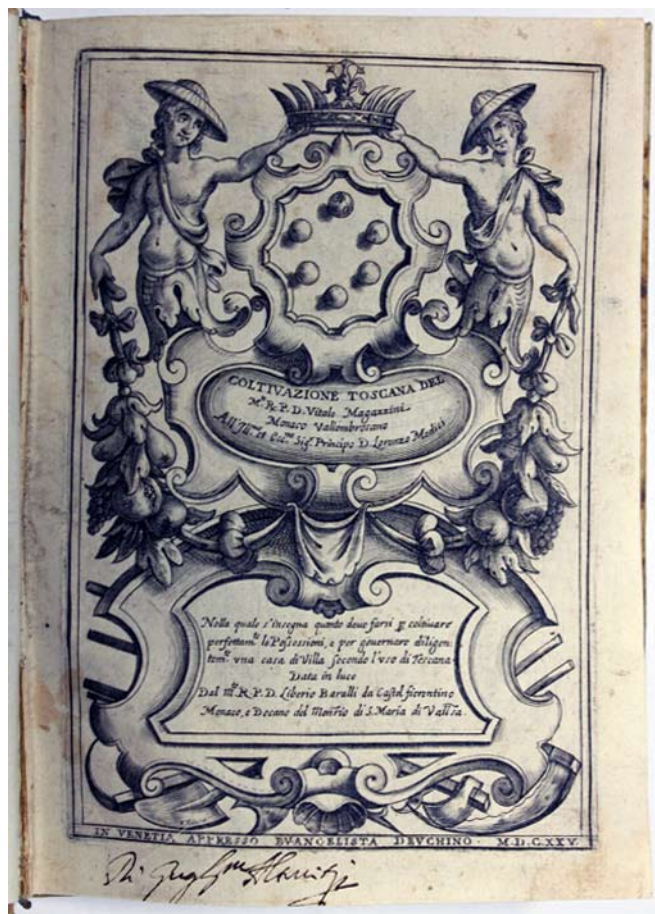 COLTIVAZIONE TOSCANA DEL
M.R.P.D. Vitale Magazzini
Monaco Vallombrosano
All'Ill.mo et Ecc.mo Sig.r Principe D. Lorenzo Medici
Nella quale s'insegna quanto deve farsi p coltivare
perfettam.te le Possessioni, e per governare diligen:
tem.te vna casa di Villa secondo l'vso di Toscana
Data in luce
Dal M.R.P.D. Liberio Baralli da Castel fiorentino
Monaco, e Decano del Mon.rio di S. Maria di
IN VENETIA, APPRESSO EVANGELISTA DEVCHINO. M.D.C.XXV.
Di